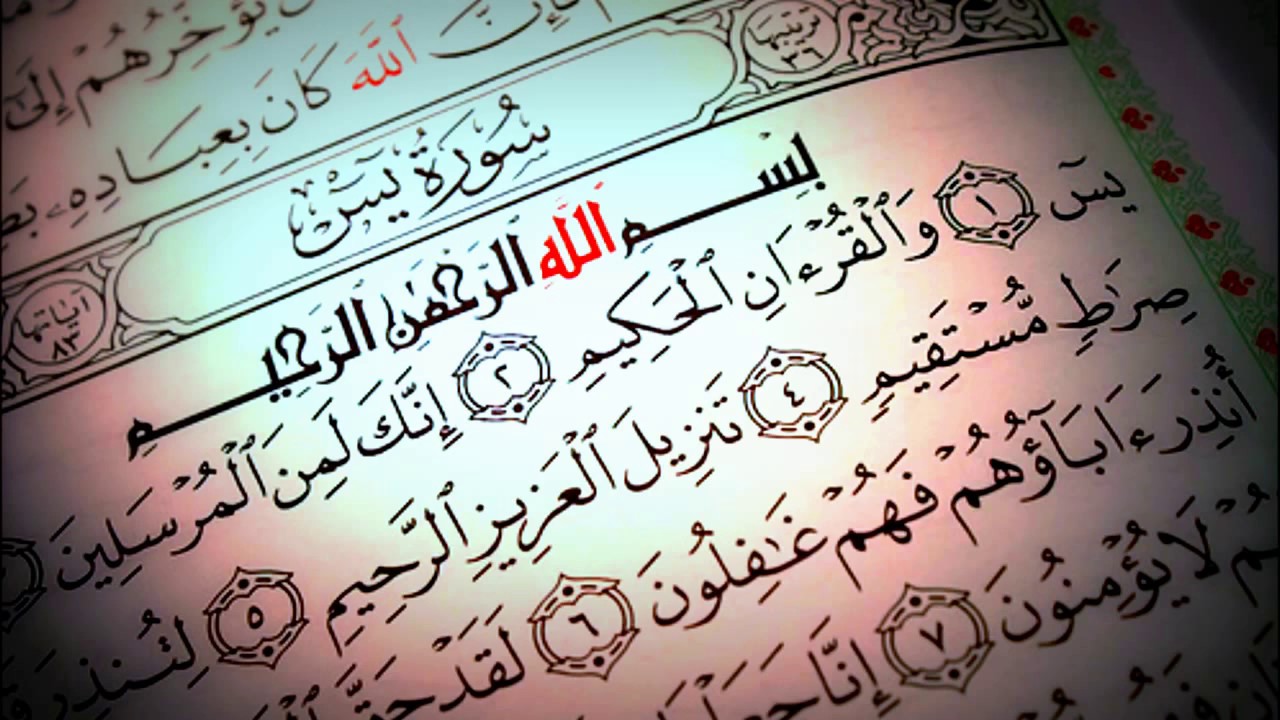 يُؤَخِّرُهُمْ إِلَىٰٓ
فَإِنَّ ٱللَّهَ كَانَ بِعِبَادِهِۦ
ترتيبها ٣٦ سُورَةُ يسٓ آياتها ٨٣
بِسْمِ اللَّهِ الرَّحْمَٰنِ الرَّحِيمِ
يسٓ ١ وَٱلْقُرْءَانِ ٱلْحَكِيمِ ٢ إِنَّكَ لَمِنَ ٱلْمُرْسَلِينَ
صِرَٰطٍ مُّسْتَقِيمٍ ٤ تَنزِيلَ ٱلْعَزِيزِ ٱلرَّحِيمِ ٥ لِتُنذِرَ
أُنذِرَ ءَابَآؤُهُمْ فَهُمْ غَٰفِلُونَ ٦ لَقَدْ حَقَّ
لَا يُؤْمِنُونَ ٧ إِنَّا جَعَلْنَا